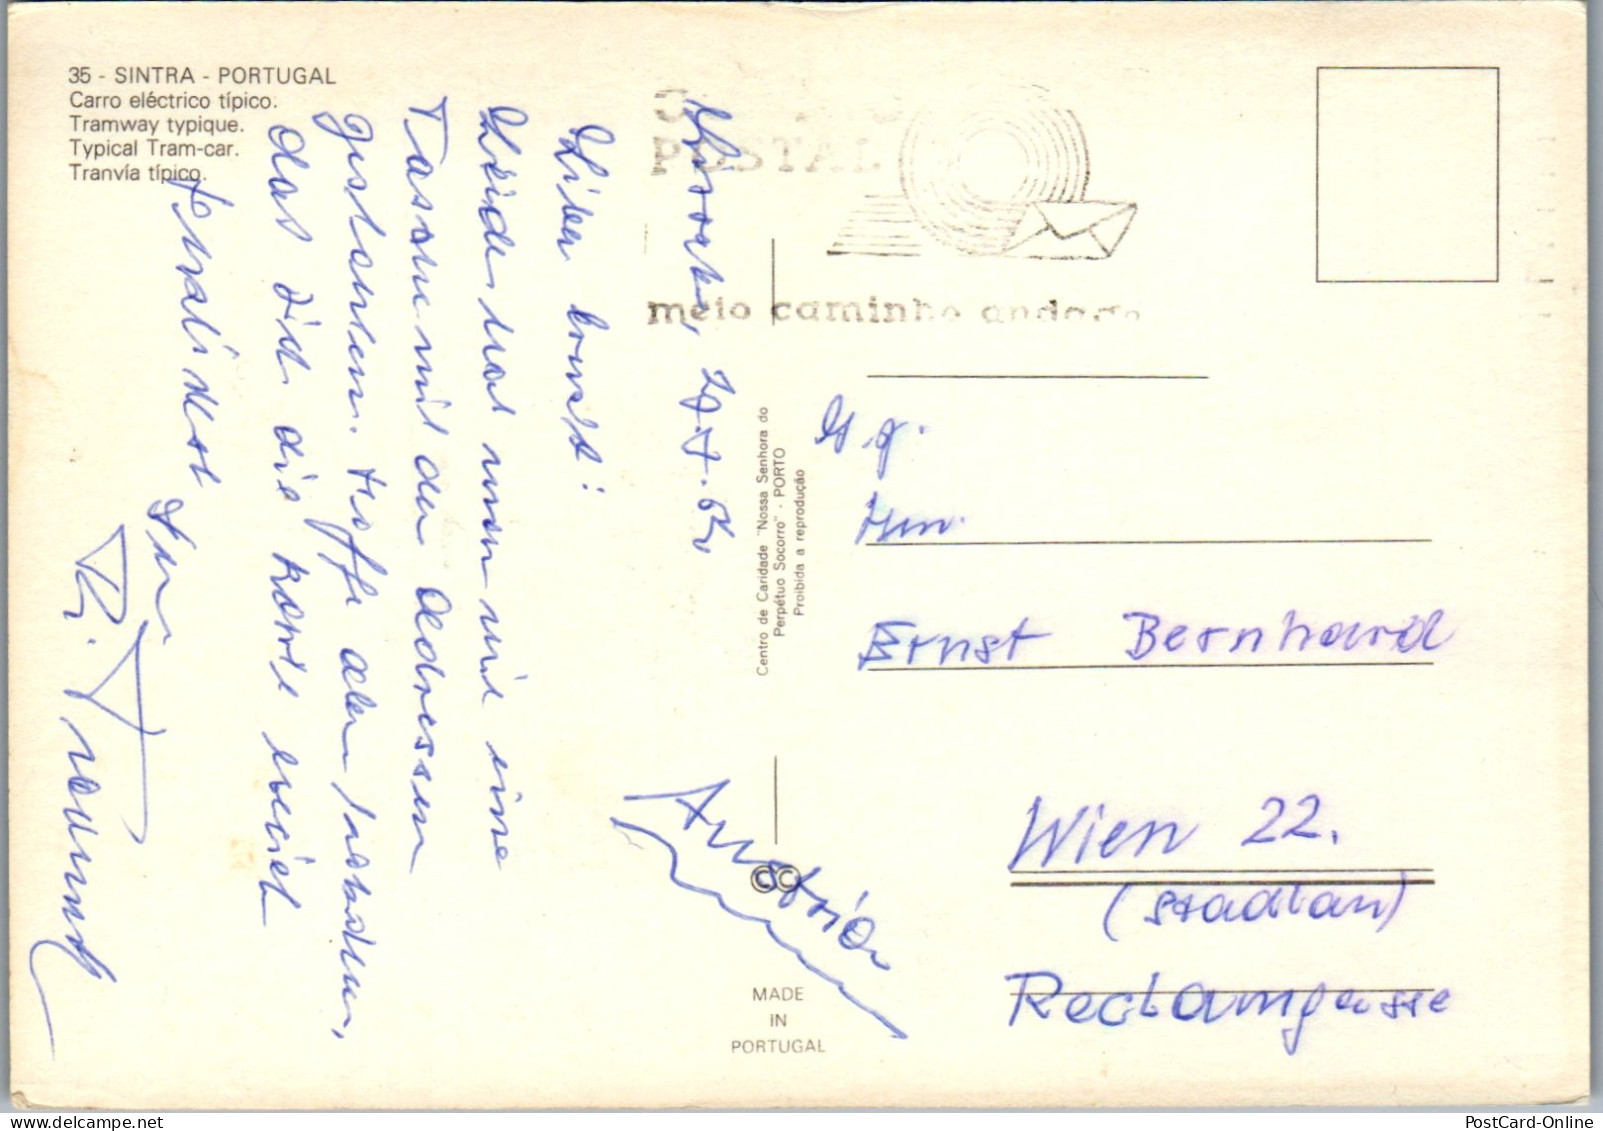 35 - SINTRA - PORTUGAL
Carro eléctrico típico.
Tramway typique.
Typical Tram-car.
Tranvía típico.
POSTAL
meio caminho andado
27.7.
Lieber Ernst!
Leider hat man mir eine
Tasche mit den Adressen
gestohlen. Hoffe aber,
das die Karte
Herzlichst Dein
Centro de Caridade "Nossa Senhora do
Perpétuo Socorro" - PORTO
Proibida a reprodução
©©
Austria
MADE
IN
PORTUGAL
Hrn.
Ernst Bernhard
Wien 22.
(Stadlau)
Reclamgasse
PostCard-Online